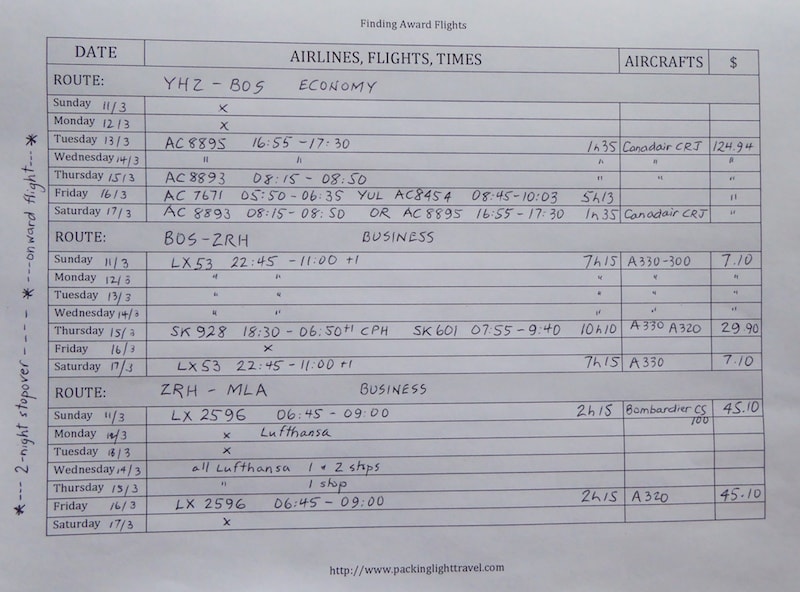 Finding Award Flights
DATE AIRLINES, FLIGHTS, TIMES AIRCRAFTS $
ROUTE: YHZ - BOS ECONOMY
Sunday 11/3 x
Monday 12/3 x
Tuesday 13/3 AC 8895 16:55 - 17:30 1h35 Canadair CRJ 124.94
Wednesday 14/3 " " " " "
Thursday 15/3 AC 8893 08:15 - 08:50 " " "
Friday 16/3 AC 7671 05:50 - 06:35 YUL AC8454 08:45-10:03 5h13 "
Saturday 17/3 AC 8893 08:15 - 08:50 OR AC 8895 16:55 - 17:30 1h35 Canadair CRJ "
ROUTE: BOS-ZRH BUSINESS
Sunday 11/3 LX53 22:45 - 11:00 +1 7h15 A330-300 7.10
Monday 12/3 " " " " "
Tuesday 13/3 " " " " "
Wednesday 14/3 " " " " "
Thursday 15/3 SK 928 18:30 - 06:50+1 CPH SK 601 07:55 - 9:40 10h10 A330 A320 29.90
Friday 16/3 x
Saturday 17/3 LX53 22:45 - 11:00 +1 7h15 A330 7.10
ROUTE: ZRH - MLA BUSINESS
Sunday 11/3 LX 2596 06:45 - 09:00 2h15 Bombardier CS 45.10
100
Monday 12/3 x Lufthansa
Tuesday 13/3 x
Wednesday 14/3 all Lufthansa 1 + 2 stops
Thursday 15/3 " 1 stop
Friday 16/3 LX 2596 06:45 - 09:00 2h15 A320 45.10
Saturday 17/3 x
* --- 2-night stopover ---- * ---onward flight--- *
http://www.packinglighttravel.com